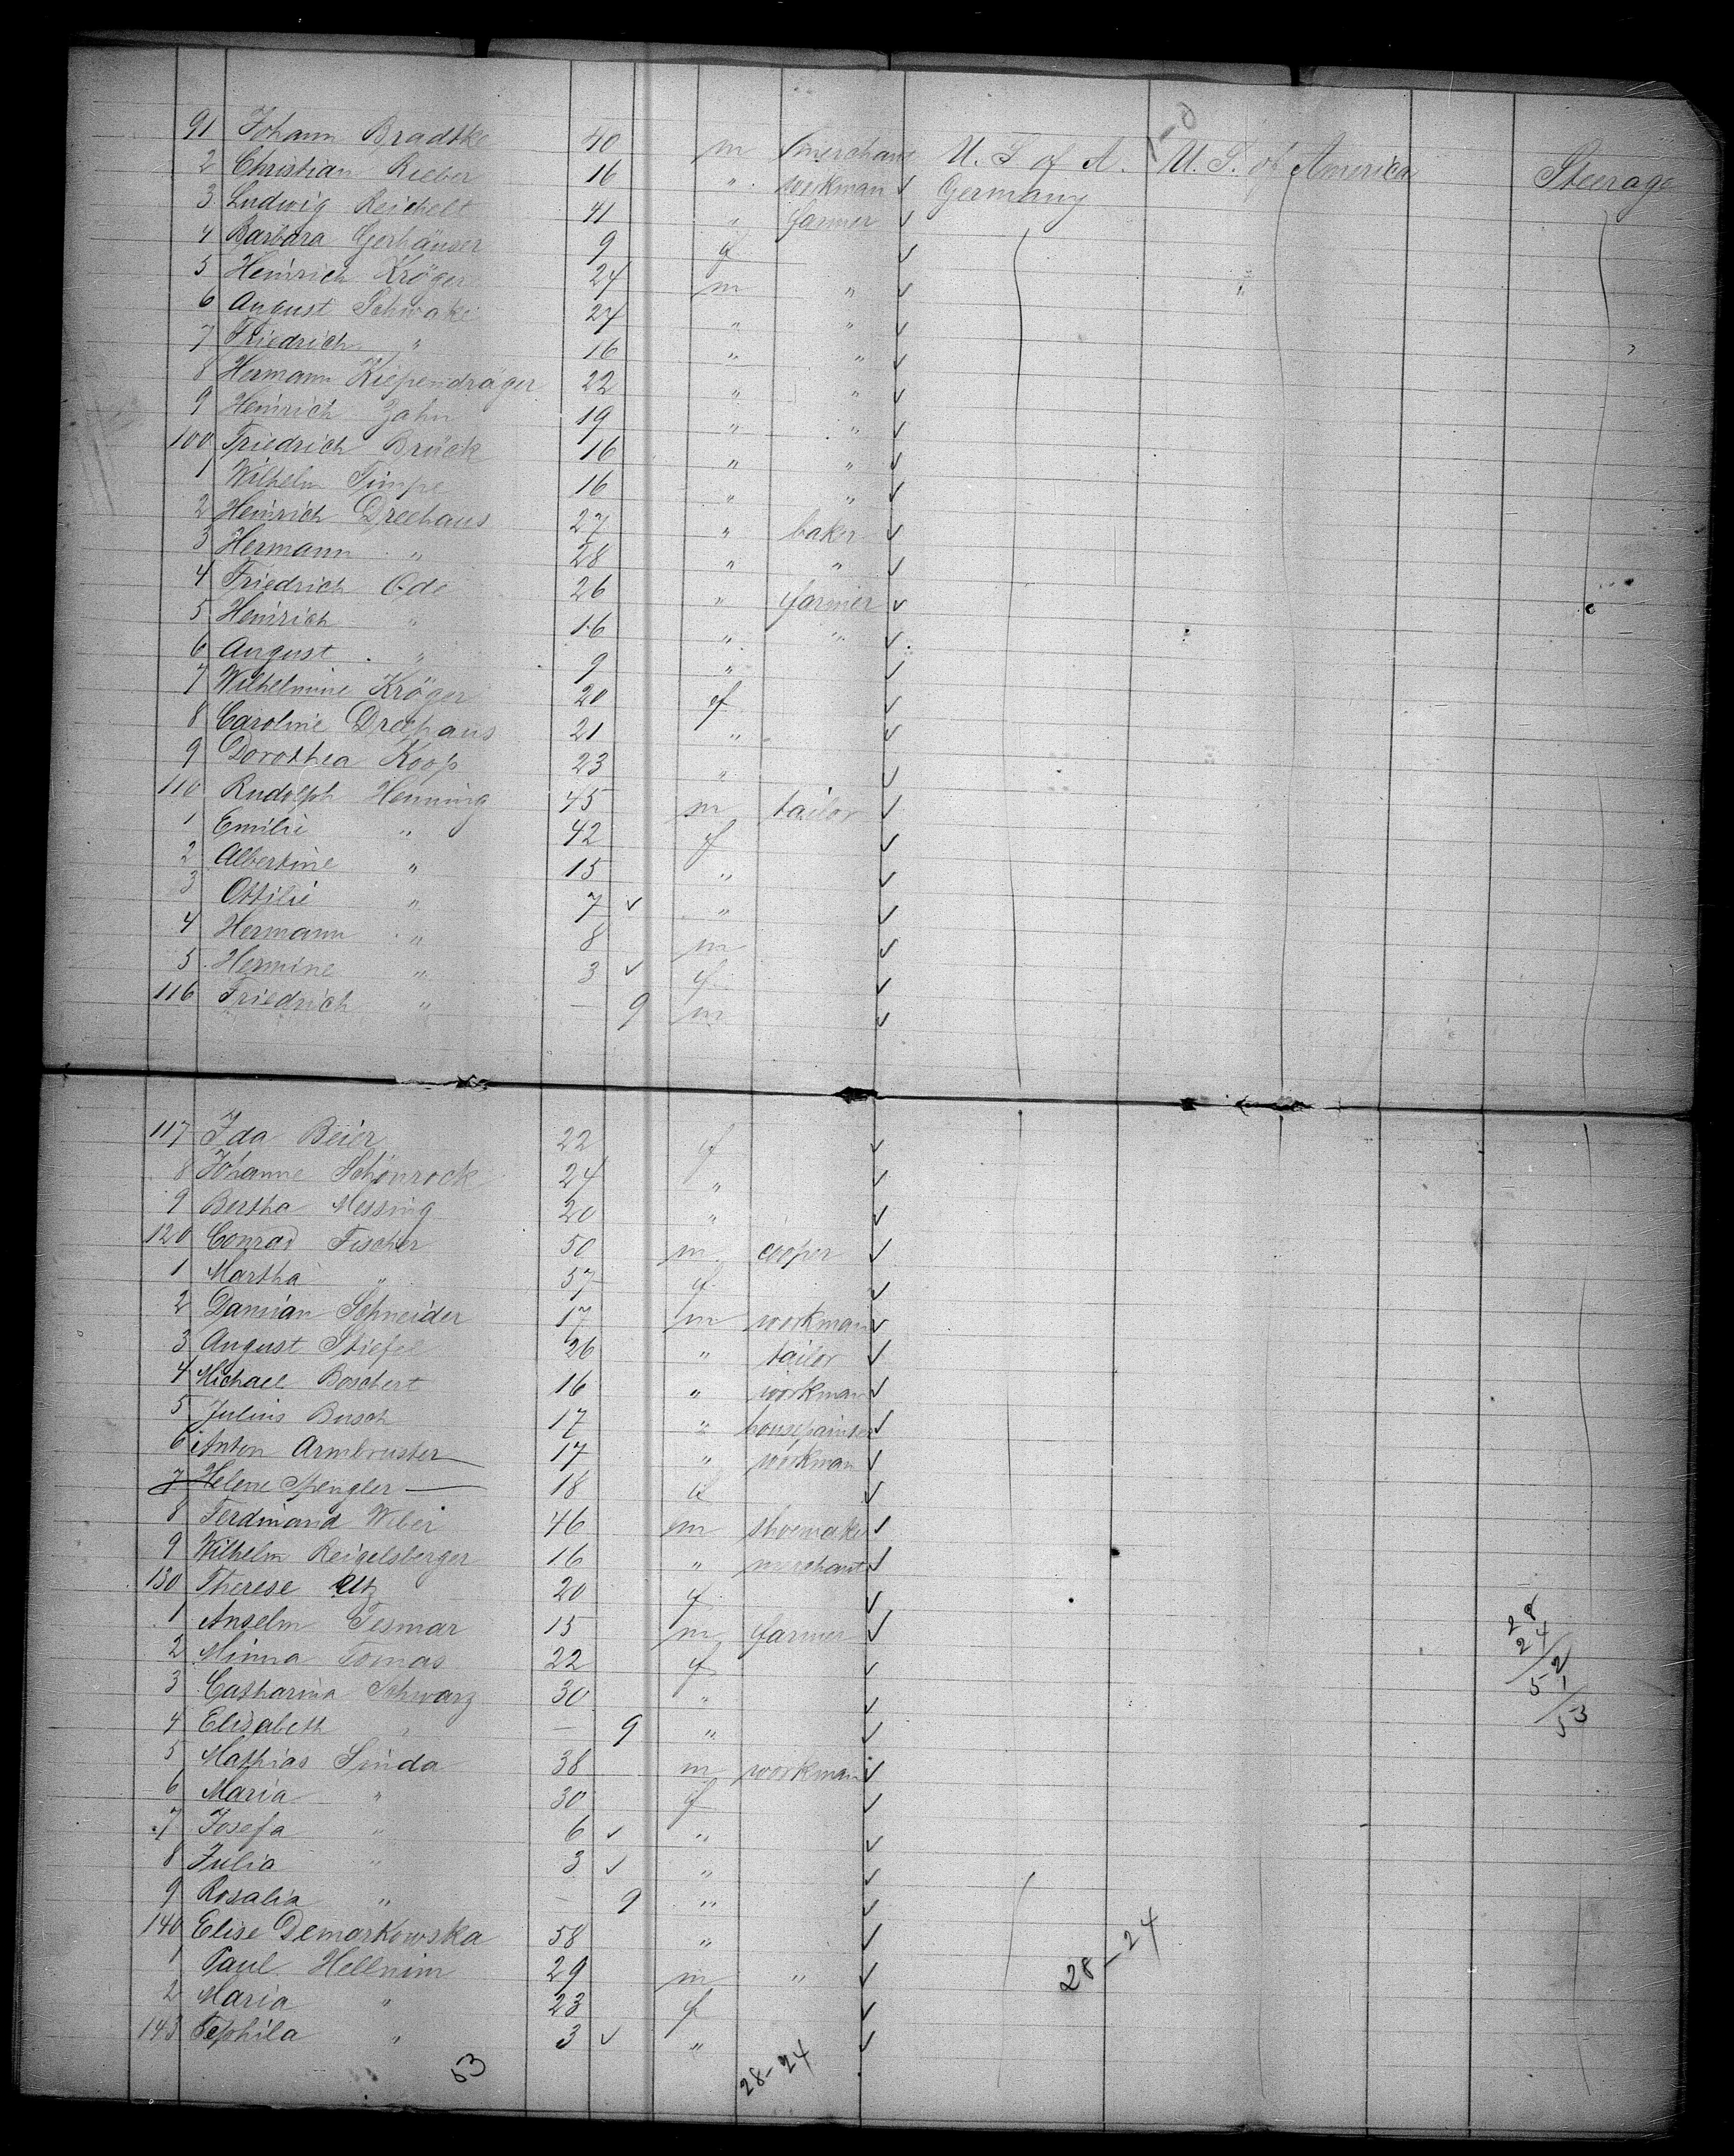 91 Johann Bradtke 40 m merchant U. S. of A. U. S. of America Steerage
2 Christian Rieber 16 " workman ✓ Germany
3 Ludwig Reichelt 41 " farmer ✓
4 Barbara Gerhäuser 9 f ✓
5 Heinrich Kröger 24 m " ✓ "
6 August Schwake 24 " " ✓
7 Friedrich " 16 " " ✓
8 Hermann Kiependräger 22 " " ✓
9 Heinrich Zahn 19 " " ✓
100 Friedrich Brück 16 " " ✓
1 Wilhelm Timpe 16 " " ✓
2 Heinrich Dreehaus 27 " baker ✓
3 Hermann " 28 " " ✓
4 Friedrich Ode 26 " farmer ✓
5 Heinrich " 16 " " ✓
6 August " 9 " ✓
7 Wilhelmine Kröger 20 f ✓
8 Caroline Dreehaus 21 " ✓
9 Dorothea Koop 23 " ✓
110 Rudolph Henning 45 m tailor ✓
1 Emilie " 42 f ✓
2 Albertine " 15 " ✓
3 Ottilie " 7 ✓ " ✓
4 Hermann " 8 m ✓
5 Hermine " 3 ✓ f ✓
116 Friedrich " — 9 m ✓
117 Ida Beier 22 f ✓
8 Johanne Schönrock 24 " ✓
9 Bertha Messing 20 " ✓
120 Conrad Fischer 50 m cooper ✓
1 Martha " 57 f ✓
2 Damian Schneider 17 m workman ✓
3 August Stiefel 26 " tailor ✓
4 Michael Boschert 16 " workman ✓
5 Julius Busch 17 " housepainter ✓
6 Anton Armbruster 17 " workman ✓
7 Helene Spengler — 18 f ✓
8 Ferdinand Weber 46 m shoemaker ✓
9 Wilhelm Reigelsberger 16 " merchant ✓
130 Therese Utz 20 f ✓
1 Anselm Tesmar 15 m farmer ✓
2 Minna Tomas 22 f ✓
3 Catharina Schwarz 30 " ✓
4 Elisabeth " — 9 " ✓
5 Mathias Sinda 38 m workman ✓
6 Maria " 30 f ✓
7 Josefa " 6 ✓ " ✓
8 Julia " 3 ✓ " ✓
9 Rosalia " — 9 " ✓
140 Elise Demarkowska 58 " ✓
1 Paul Hellnim 29 m " ✓
2 Maria " 23 f ✓
143 Tephila " 3 ✓ " ✓
28
24
52
1
53
28-24
53 28-24